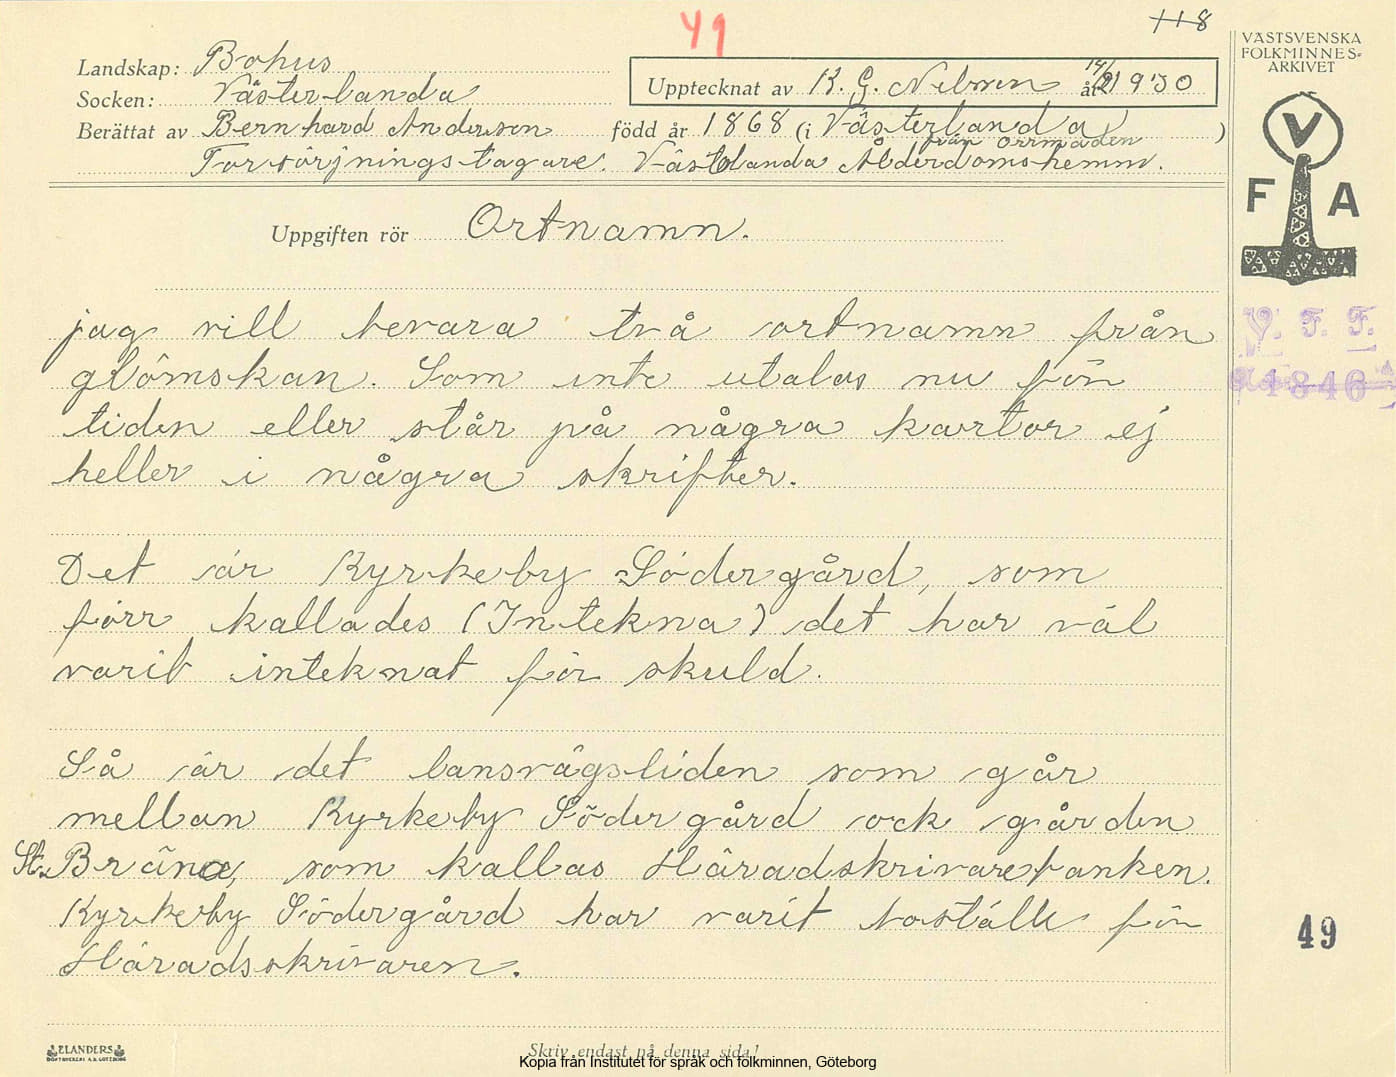 49
118
Landskap: Bohus
Socken: Västerlanda
Upptecknat av K. G. Nilsson år 14/2 1930
Berättat av Bernhard Anderson född år 1868 (i Västerlanda)
från Orrmaden
Forsörjningstagare. Västolanda Ålderdomshemm.
VÄSTSVENSKA
FOLKMINNES-
ARKIVET
V
F A
Uppgiften rör Ortnamn.
jag vill bevara två ortnamn från
glömskan. Som inte utalas nu för
tiden eller står på några kartor ej
heller i några skrifter.
V. F. F.
1846
Det är Kyrkeby Södergård, som
förr kallades (Intekna) det har väl
varit inteknat för skuld.
Så är det lansvägsliden som går
mellan Kyrkeby Södergård ock gården
St. Bräna, som kallas Häradskrivarebanken.
Kyrkeby Södergård har varit boställe för
Häradsskrivaren.
49
ELANDERS
BOKTRYCKERI A.B. GÖTEBORG
Skriv endast på denna sida!
Kopia från Institutet för språk och folkminnen, Göteborg